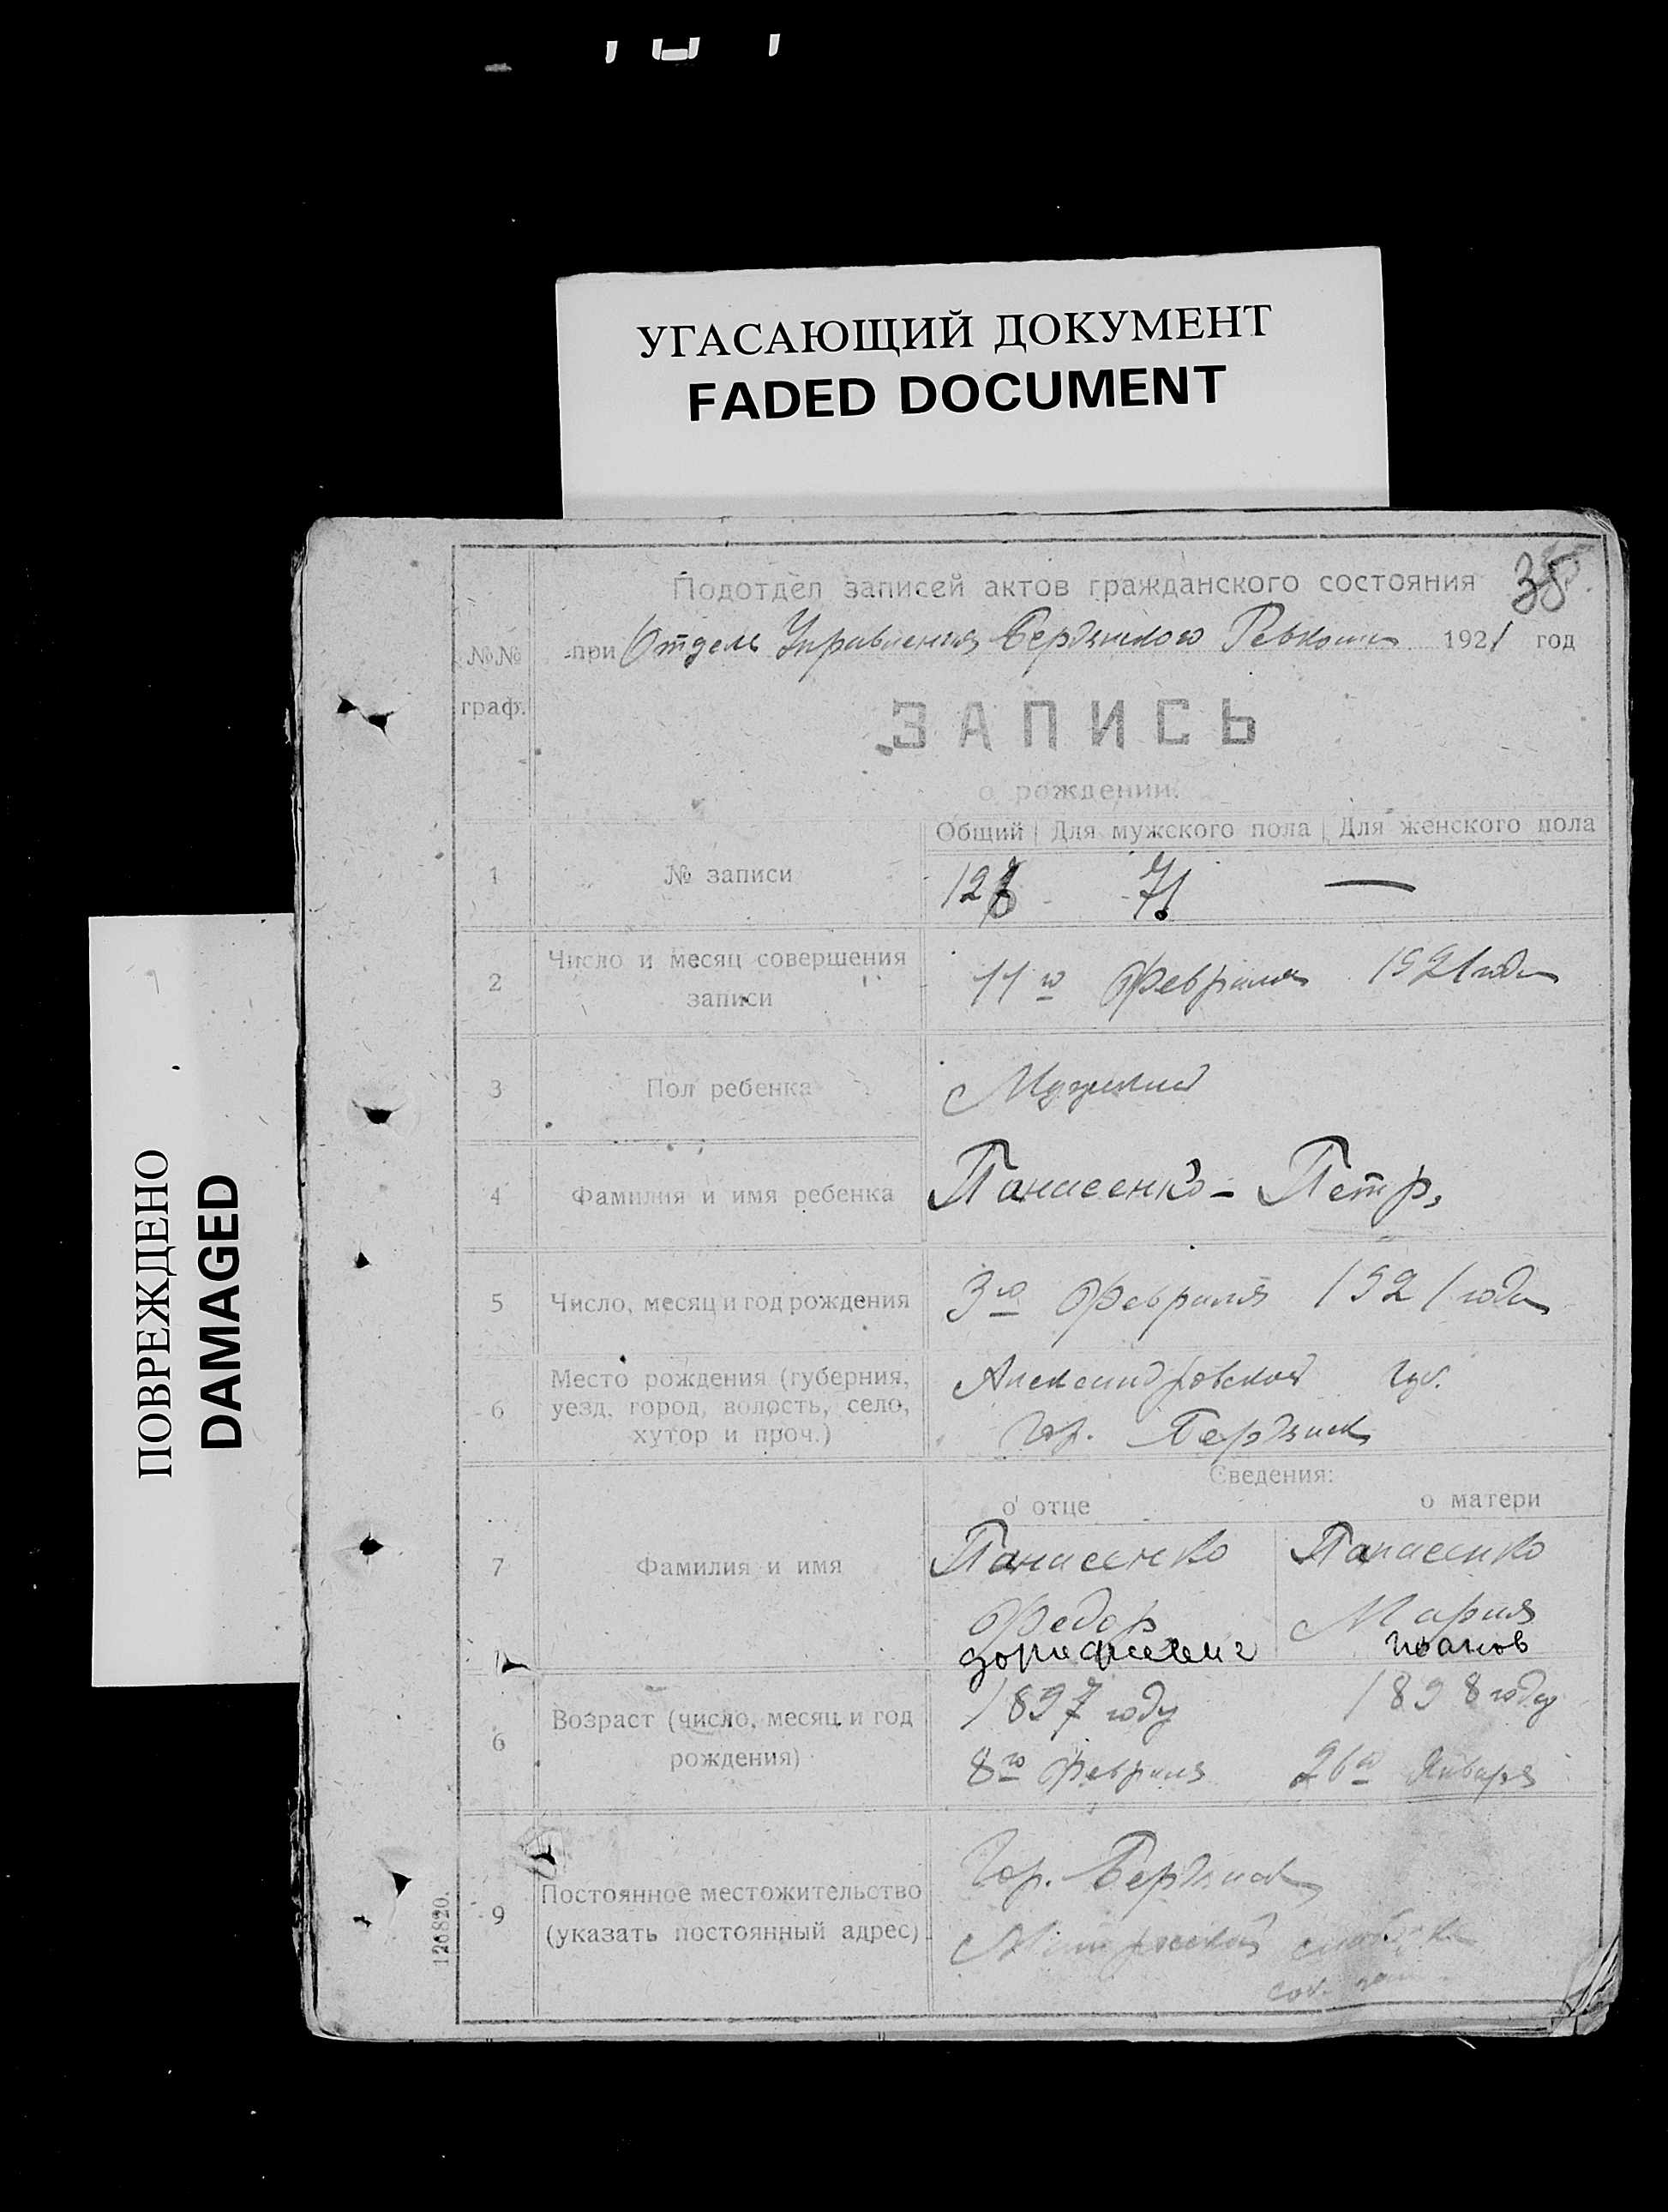 УГАСАЮЩИЙ ДОКУМЕНТ
FADED DOCUMENT
ПОВРЕЖДЕНО
DAMAGED
38
Подотдел записей актов гражданского состояния
№№ граф.
при Отделе Управления Бердянского Ревкома 1921 год
ЗАПИСЬ
о рождении.
Общий Для мужского пола Для женского пола
1 № записи 71 —
2 Число и месяц совершения записи 11го Февраля 1921 года
3 Пол ребенка Мужской
4 Фамилия и имя ребенка Панасенко - Петр,
5 Число, месяц и год рождения 3го Февраля 1921 года
6 Место рождения (губерния, уезд, город, волость, село, хутор и проч.) Александровской губ.
гор. Бердянск
Сведения:
о отце о матери
7 Фамилия и имя Панасенко Панасенко
Федор Мария
6 Возраст (число, месяц и год рождения) 1897 году 1898 году
8го Февраля 26го Января
9 Постоянное местожительство (указать постоянный адрес) Гор. Бердянск
126820.